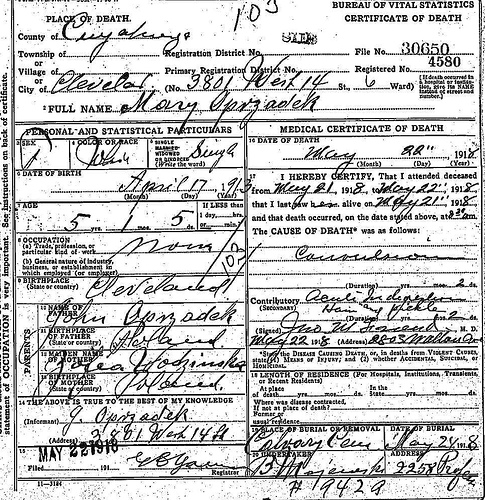 103
BUREAU OF VITAL STATISTICS
CERTIFICATE OF DEATH
PLACE OF DEATH.
County of Cuyahoga
Township of Registration District No. File No. 30650
or
Village of Primary Registration District No. Registered No. 4580
or
City of Cleveland (No. 3801 West 14 St., 6 Ward)
[If death occurred in a hospital or institution, give its NAME instead of street and number.]
2 FULL NAME Mary Oprzadek
PERSONAL AND STATISTICAL PARTICULARS
3 SEX
4 COLOR OR RACE
5 SINGLE MARRIED WIDOWED OR DIVORCED (Write the word) Single
6 DATE OF BIRTH
April 17 1913
(Month) (Day) (Year)
7 AGE
5 yrs. 1 mos. 5 ds.
If LESS than 1 day, hrs. or min.
8 OCCUPATION
(a) Trade, profession, or particular kind of work None
(b) General nature of industry, business, or establishment in which employed (or employer)
9 BIRTHPLACE (State or country) Cleveland
PARENTS
10 NAME OF FATHER John Oprzadek
11 BIRTHPLACE OF FATHER (State or country) Poland
12 MAIDEN NAME OF MOTHER
13 BIRTHPLACE OF MOTHER (State or country) Poland
14 THE ABOVE IS TRUE TO THE BEST OF MY KNOWLEDGE
(Informant) J. Oprzadek
(Address) 3801 West 14 St
15
Filed MAY 22 1918 191
Registrar
11-3184
MEDICAL CERTIFICATE OF DEATH
16 DATE OF DEATH
May 22" 1918
(Month) (Day) (Year)
17 I HEREBY CERTIFY, That I attended deceased
from May 21 1918, to May 22" 1918
that I last saw alive on May 21" 1918
and that death occurred, on the date stated above, at
The CAUSE OF DEATH was as follows:
Convulsions
(Duration) yrs. mos. 2 ds.
Contributory Acute Indigestion
(SECONDARY)
(Duration) yrs. mos. 2 ds.
(Signed) M. D.
May 22 1918 (Address)
*State the DISEASE CAUSING DEATH, or, in deaths from VIOLENT CAUSES, state (1) MEANS OF INJURY; and (2) whether ACCIDENTAL, SUICIDAL, or HOMICIDAL.
18 LENGTH OF RESIDENCE (For Hospitals, Institutions, Transients, or Recent Residents)
At place of death yrs. mos. ds. In the State yrs. mos. ds.
Where was disease contracted, if not at place of death?
Former or usual residence
19 PLACE OF BURIAL OR REMOVAL DATE OF BURIAL
Calvary Cem May 24 1918
20 UNDERTAKER ADDRESS
2258
# 19429
statement of OCCUPATION is very important. See instructions on back of certificate.